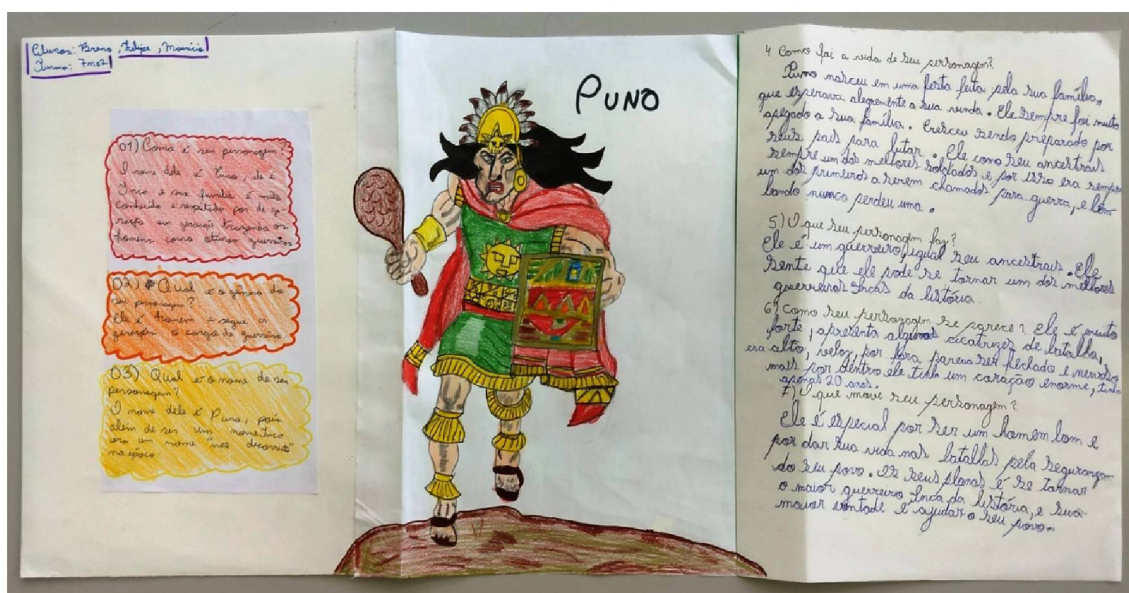 Alunos: Breno, Felipe, Mauricio
Turma: 7m02
01) Como é seu personagem?
O nome dele é Puno, ele é
Inca e sua família é muito
conhecida e respeitada por de ge
ração em geração
homens como ótimos guerreiros
02) Qual é o gênero do
seu personagem?
Ele é homem e segue a
geração o cargo de guerreiro
03) Qual é o nome de seu
personagem?
O nome dele é Puno, pois
além de ser um nome Inca
era um nome
na época
PUNO
4 Como foi a vida de seu personagem?
Puno nasceu em uma festa feita pela sua família,
que esperava alegremente a sua vinda. Ele sempre foi muito
apegado a sua família. Cresceu sendo preparado por
seus pais para lutar. Ele como seu ancestrais
sempre um dos melhores soldados e por isso era sempre
um dos primeiros a serem chamados para guerra, e
nunca perdeu uma.
5) O que seu personagem faz?
Ele é um guerreiro, igual seu ancestrais. Ele
sente que ele pode se tornar um dos melhores
guerreiros Incas da história.
6) Como seu personagem se parece? Ele é muito
forte, apresenta algumas cicatrizes de batalha,
era alto, veloz, por fora parecia ser fechado e nervoso
mais por dentro ele tinha um coração enorme, tinha
apenas 20 anos.
7) O que move seu personagem?
Ele é especial por ser um homem bom e
por dar sua vida nas batallas pela segurança
do seu povo. seus planos é se tornar
o maior guerreiro Inca da história, e sua
maior vontade é ajudar o seu povo.